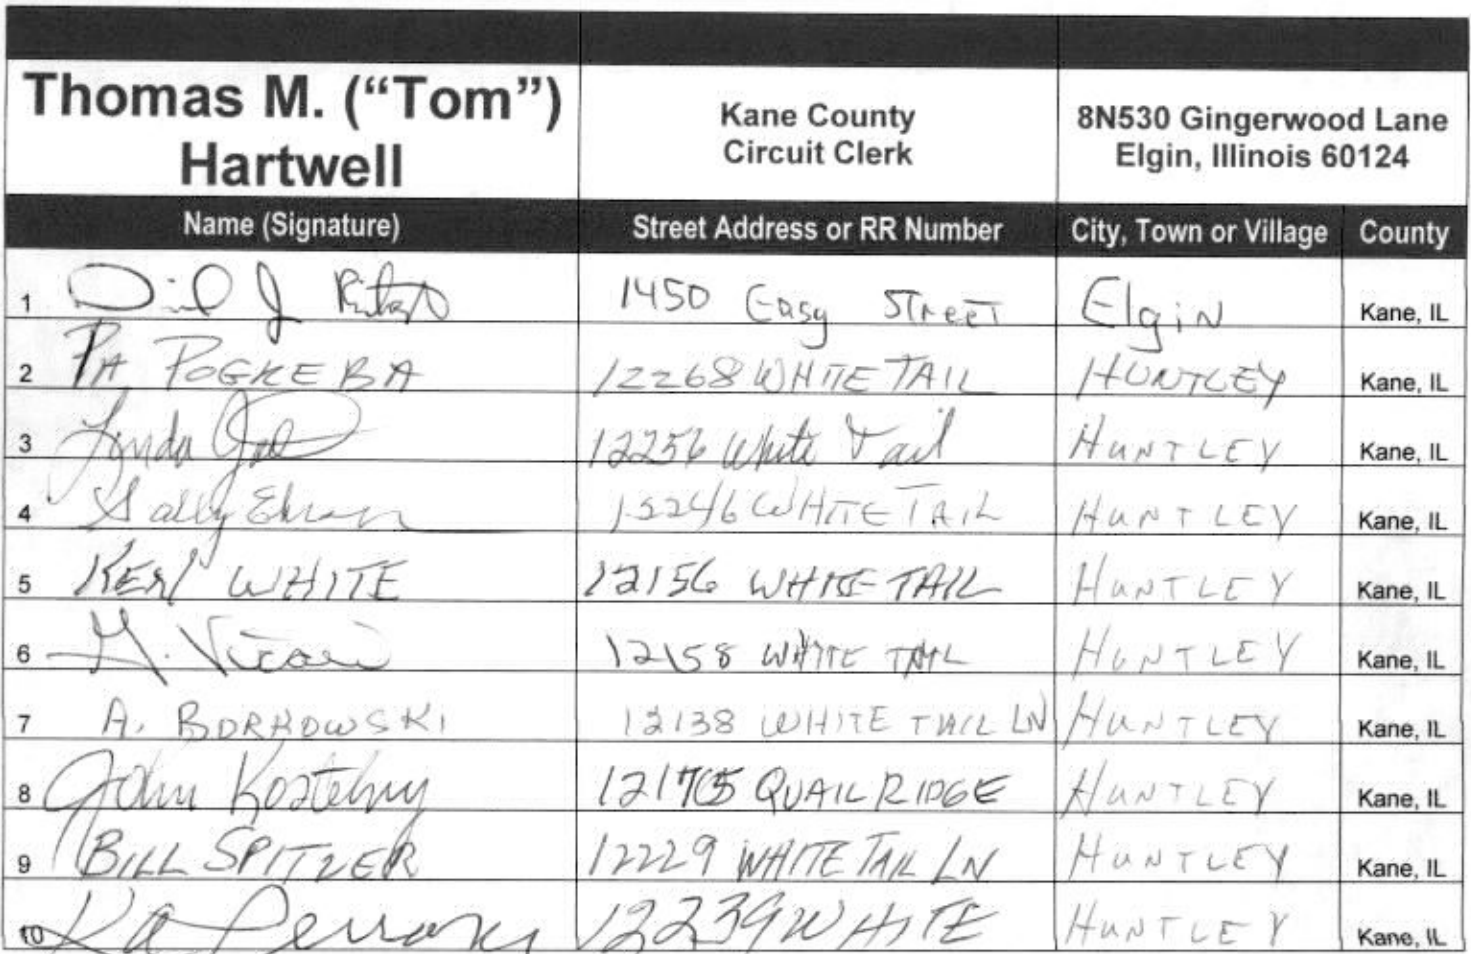 Thomas M. ("Tom") Hartwell
Kane County Circuit Clerk
8N530 Gingerwood Lane Elgin, Illinois 60124
Name (Signature) Street Address or RR Number City, Town or Village County
1 J 1450 Easy Street Elgin Kane, IL
2 PA POGKEBA 12268 WHITE TAIL HUNTLEY Kane, IL
3 Linda 12256 White Tail HUNTLEY Kane, IL
4 Sally 12246 WHITE TAIL HUNTLEY Kane, IL
5 WHITE 12156 WHITE TAIL HUNTLEY Kane, IL
6 12158 WHITE TAIL HUNTLEY Kane, IL
7 A. BORKOWSKI 12138 WHITE TAIL LN HUNTLEY Kane, IL
8 John QUAIL RIDGE HUNTLEY Kane, IL
9 BILL SPITZER 12229 WHITE TAIL LN HUNTLEY Kane, IL
10 12239 WHITE HUNTLEY Kane, IL